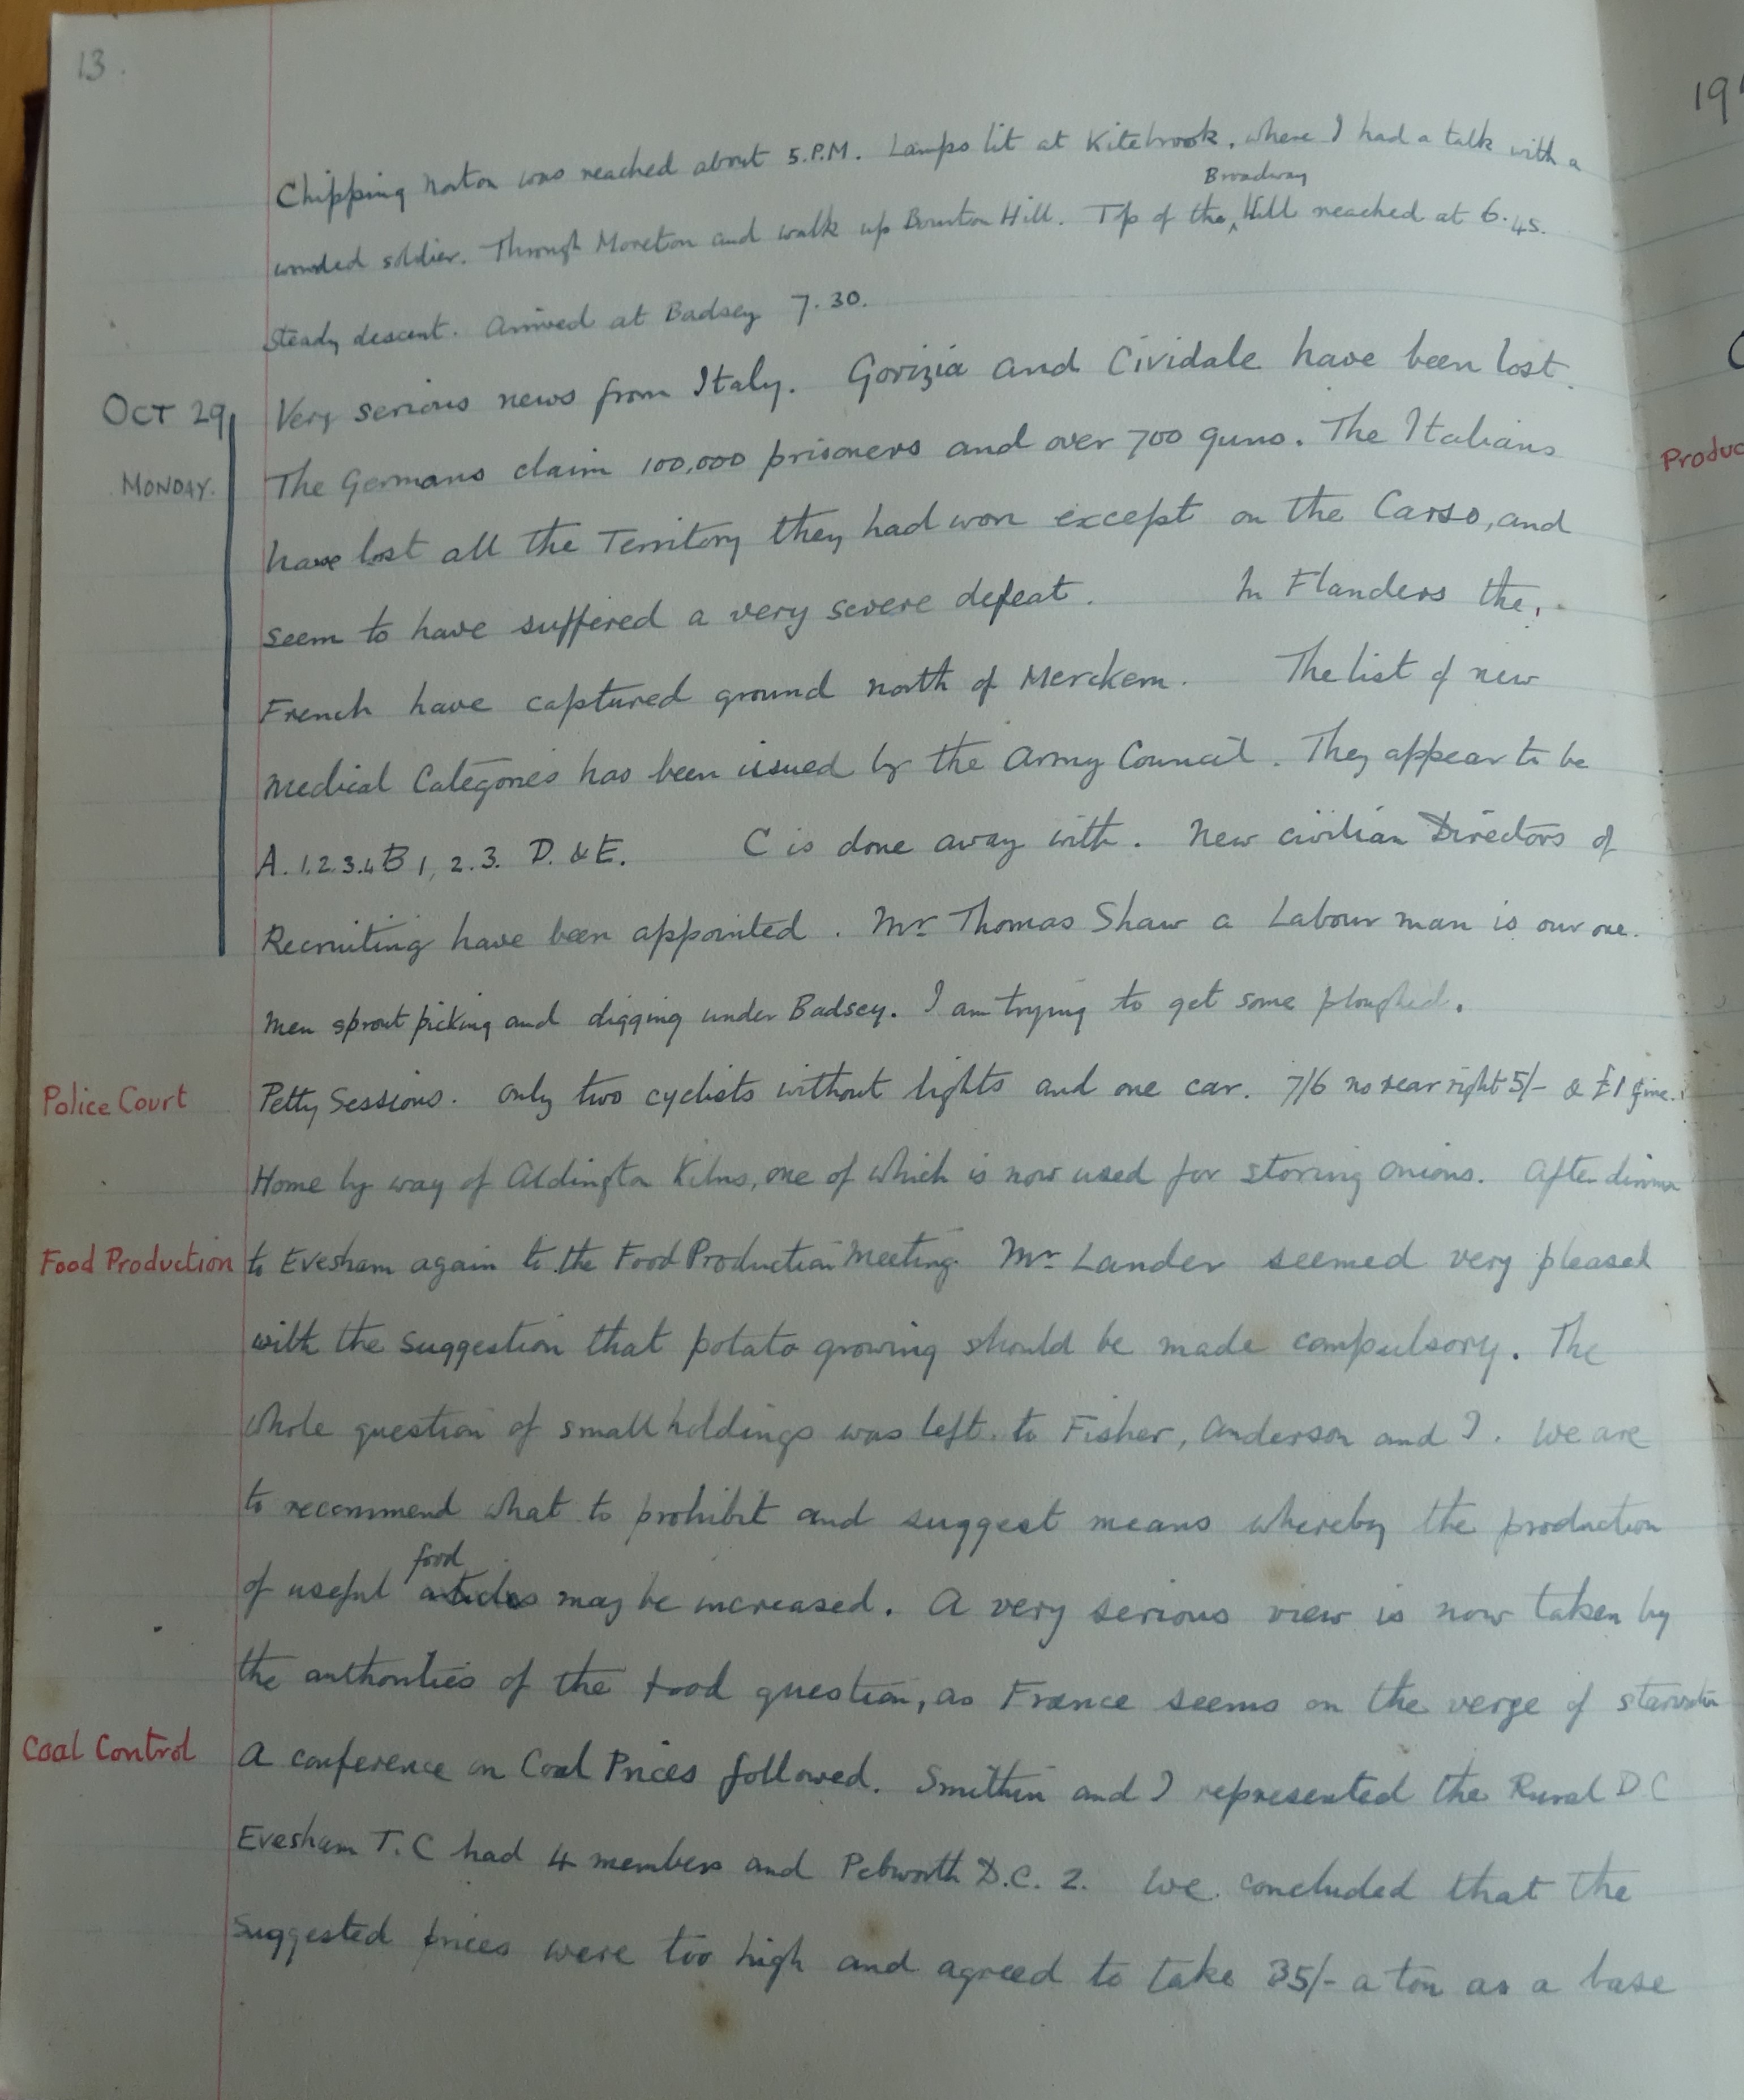 13.
191
Chipping Norton was reached about 5.P.M. Lamps lit at Kitebrook, where I had a talk with a
Broadway
wounded soldier. Through Moreton and walk up Bourton Hill. Top of the Hill reached at 6.45.
Steady descent. Arrived at Badsey 7.30.
OCT 29
MONDAY.
Very serious news from Italy. Gorizia and Cividale have been lost.
The Germans claim 100,000 prisoners and over 700 guns. The Italians
have lost all the Territory they had won except on the Carso, and
seem to have suffered a very severe defeat. In Flanders the
French have captured ground north of Merckem. The list of new
Medical Categories has been issued by the Army Council. They appear to be
A. 1.2.3.4 B 1, 2.3. D. & E. C is done away with. New civilian Directors of
Recruiting have been appointed. Mr Thomas Shaw a Labour man is our one.
Men sprout picking and digging under Badsey. I am trying to get some ploughed.
Police Court
Petty Sessions. Only two cyclists without lights and one car. 7/6 no rear right 5/- & £1 fine.
Home by way of Aldington Kilns, one of which is now used for storing onions. After dinner
Food Production
to Evesham again to the Food Production Meeting. Mr Lander seemed very pleased
with the suggestion that potato growing should be made compulsory. The
whole question of small holdings was left to Fisher, Anderson and I. We are
to recommend what to prohibit and suggest means whereby the production
food
of useful articles may be increased. A very serious view is now taken by
the authorities of the food question, as France seems on the verge of starvation
Coal Control
A conference on Coal Prices followed. Smithin and I represented the Rural D C
Evesham T.C had 4 members and Pebworth D.C. 2. We concluded that the
suggested prices were too high and agreed to take 35/- a ton as a base